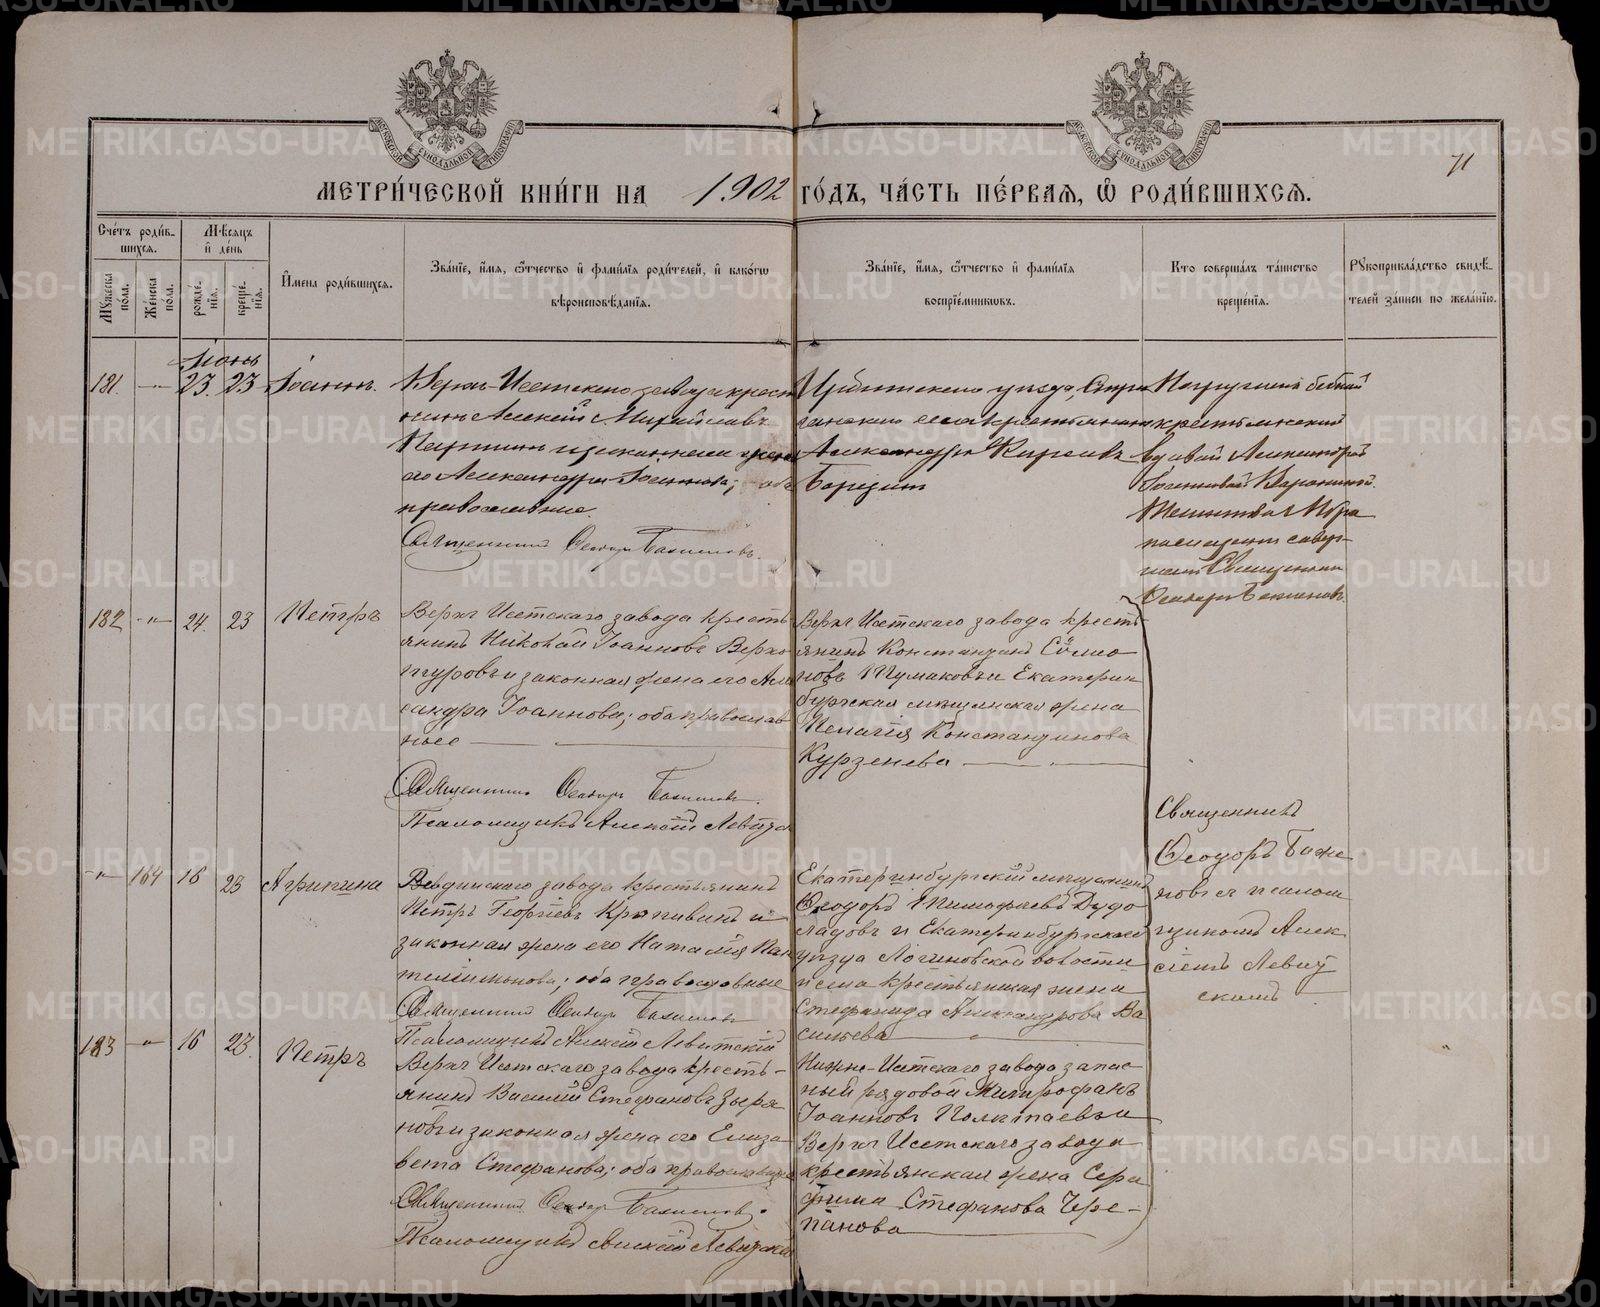 МЕТРИ́ЧЕСКОЙ КНИ́ГИ НА 1902 ГО́ДЪ, ЧА́СТЬ ПЕ́РВАЯ, Ѡ РОДИ́ВШИХСЯ.
71
Сче́тъ роди́в-
шихся.
Му́жеска
по́ла.
Же́нска
по́ла.
Мѣ́сяцъ
и҆ де́нь
рожде́-
нїя.
креще́-
нїя.
И҆мена роди́вшихся.
Зва́нїе, и҆́мя, ѻ҆́тчество и҆ фами́лїя роди́телей, и҆ како́гѡ
вѣроисповѣ́данїя.
Зва́нїе, и҆́мя, ѻ҆́тчество и҆ фами́лїя
воспрїе́мниковъ.
Кто соверша́лъ та́инство
креще́нїя.
Рꙋкоприкла́дство свидѣ́-
телей за́писи по жела́нїю.
Іюнь
181. —"— 23. 23 Іоаннъ.
Верхъ-Исетскаго завода крест
Алексій
и законная жена
его Александра Іоаннова; оба
православные.
Священникъ Ѳеодоръ Баженовъ.
Ирбитскаго уѣзда,
села крестьянинъ
Александръ Киреевъ
крестьянской
вдовой
Іоанновой
Таинство Мѵро
помазанія совер-
шалъ Священникъ
Ѳеодоръ Баженовъ.
182 -"- 24. 23 Петръ
Верхъ Исетскаго завода кресть
янинъ Николай Іоанновъ Верхо
туровъ и законная жена его Алек
сандра Іоаннова; оба православ
ные —
Священникъ Ѳеодоръ Баженовъ.
Псаломщикъ Алексій Левитск
Верхъ Исетскаго завода кресть
янинъ Константинъ Сѵмео
новъ Тумаковъ и Екатерин
бургская мѣщанская жена
Пелагія Константинова
Курзенева —
-"- 164 16 23 Агрипина
Ревдинскаго завода крестьянинъ
Петръ Георгіевъ Крапивинъ и
законная жена его Наталія Пан
телеимонова; оба православные
Священникъ Ѳеодоръ Баженовъ
Псаломщикъ Алексій Левитскій
Екатеринбургскій мѣщанинъ
Ѳеодоръ Тимофеевъ Дудо
ладовъ и Екатеринбургскаго
уѣзда Логиновской волости
и села крестьянская жена
Стефанида Александрова Ва
сильева —
Священникъ
Ѳеодоръ Баже
новъ съ псалом
щикомъ Алек
сіемъ Левит
скимъ
183 -"- 16 23. Петръ
Верхъ Исетскаго завода кресть-
янинъ Василій Стефановъ Зыря
новъ и законная жена его Елиза-
вета Стефанова; оба православные
Священникъ Ѳеодоръ Баженовъ.
Псаломщикъ Алексій Левитскі
Нижне-Исетскаго завода запас
ный рядовой Митрофанъ
Іоанновъ Полытаевъ и
Верхъ Исетскаго завода
крестьянская жена Сера
фима Стефанова Чере-
панова —
METRIKI.GASO-URAL.RU